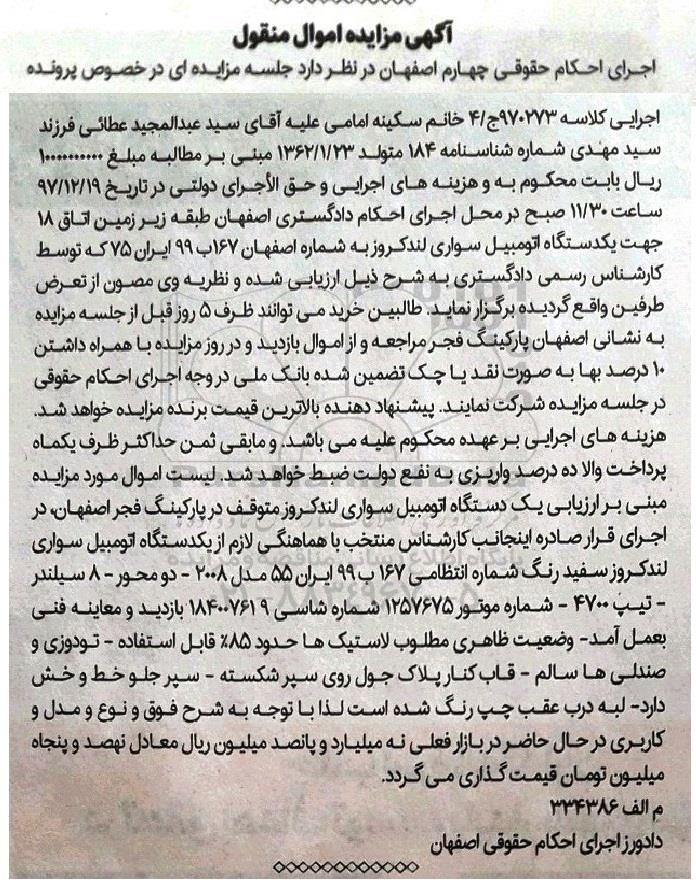 آگهی مزایده اموال منقول
اجرای احکام حقوقی چهارم اصفهان در نظر دارد جلسه مزایده ای در خصوص پرونده
اجرایی کلاسه ۹۷۰۲۷۳ج/۴ خانم سکینه امامی علیه آقای سید عبدالمجید عطائی فرزند
سید مهدی شماره شناسنامه ۱۸۴ متولد ۱۳۶۲/۱/۲۳ مبنی بر مطالبه مبلغ ۱۰۰۰۰۰۰۰۰۰۰
ریال بابت محکوم به و هزینه های اجرایی و حق الأجرای دولتی در تاریخ ۹۷/۱۲/۱۹
ساعت ۱۱/۳۰ صبح در محل اجرای احکام دادگستری اصفهان طبقه زیر زمین اتاق ۱۸
جهت یکدستگاه اتومبیل سواری لندکروز به شماره اصفهان ۱۶۷ب ۹۹ ایران ۷۵ که توسط
کارشناس رسمی دادگستری به شرح ذیل ارزیابی شده و نظریه وی مصون از تعرض
طرفین واقع گردیده برگزار نماید. طالبین خرید می توانند ظرف ۵ روز قبل از جلسه مزایده
به نشانی اصفهان پارکینگ فجر مراجعه و از اموال بازدید و در روز مزایده با همراه داشتن
۱۰ درصد بها به صورت نقد یا چک تضمین شده بانک ملی در وجه اجرای احکام حقوقی
در جلسه مزایده شرکت نمایند. پیشنهاد دهنده بالاترین قیمت برنده مزایده خواهد شد.
هزینه های اجرایی بر عهده محکوم علیه می باشد. و مابقی ثمن حداکثر ظرف یکماه
پرداخت والا ده درصد واریزی به نفع دولت ضبط خواهد شد. لیست اموال مورد مزایده
مبنی بر ارزیابی یک دستگاه اتومبیل سواری لندکروز متوقف در پارکینگ فجر اصفهان، در
اجرای قرار صادره اینجانب کارشناس منتخب با هماهنگی لازم از یکدستگاه اتومبیل سواری
لندکروز سفید رنگ شماره انتظامی ۱۶۷ ب ۹۹ ایران ۵۵ مدل ۲۰۰۸ - دو محور - ۸ سیلندر
- تیپ ۴۷۰۰ - شماره موتور ۱۲۵۷۶۷۵ شماره شاسی ۹ ۱۸۴۰۰۷۶۱ بازدید و معاینه فنی
بعمل آمد- وضعیت ظاهری مطلوب لاستیک ها حدود ۸۵٪ قابل استفاده - تودوزی و
صندلی ها سالم - قاب کنار پلاک جول روی سپر شکسته - سپر جلو خط و خش
دارد- لبه درب عقب چپ رنگ شده است لذا با توجه به شرح فوق و نوع و مدل و
کاربری در حال حاضر در بازار فعلی نه میلیارد و پانصد میلیون ریال معادل نهصد و پنجاه
میلیون تومان قیمت گذاری می گردد.
م الف ۳۳۴۳۸۶
دادورز اجرای احکام حقوقی اصفهان